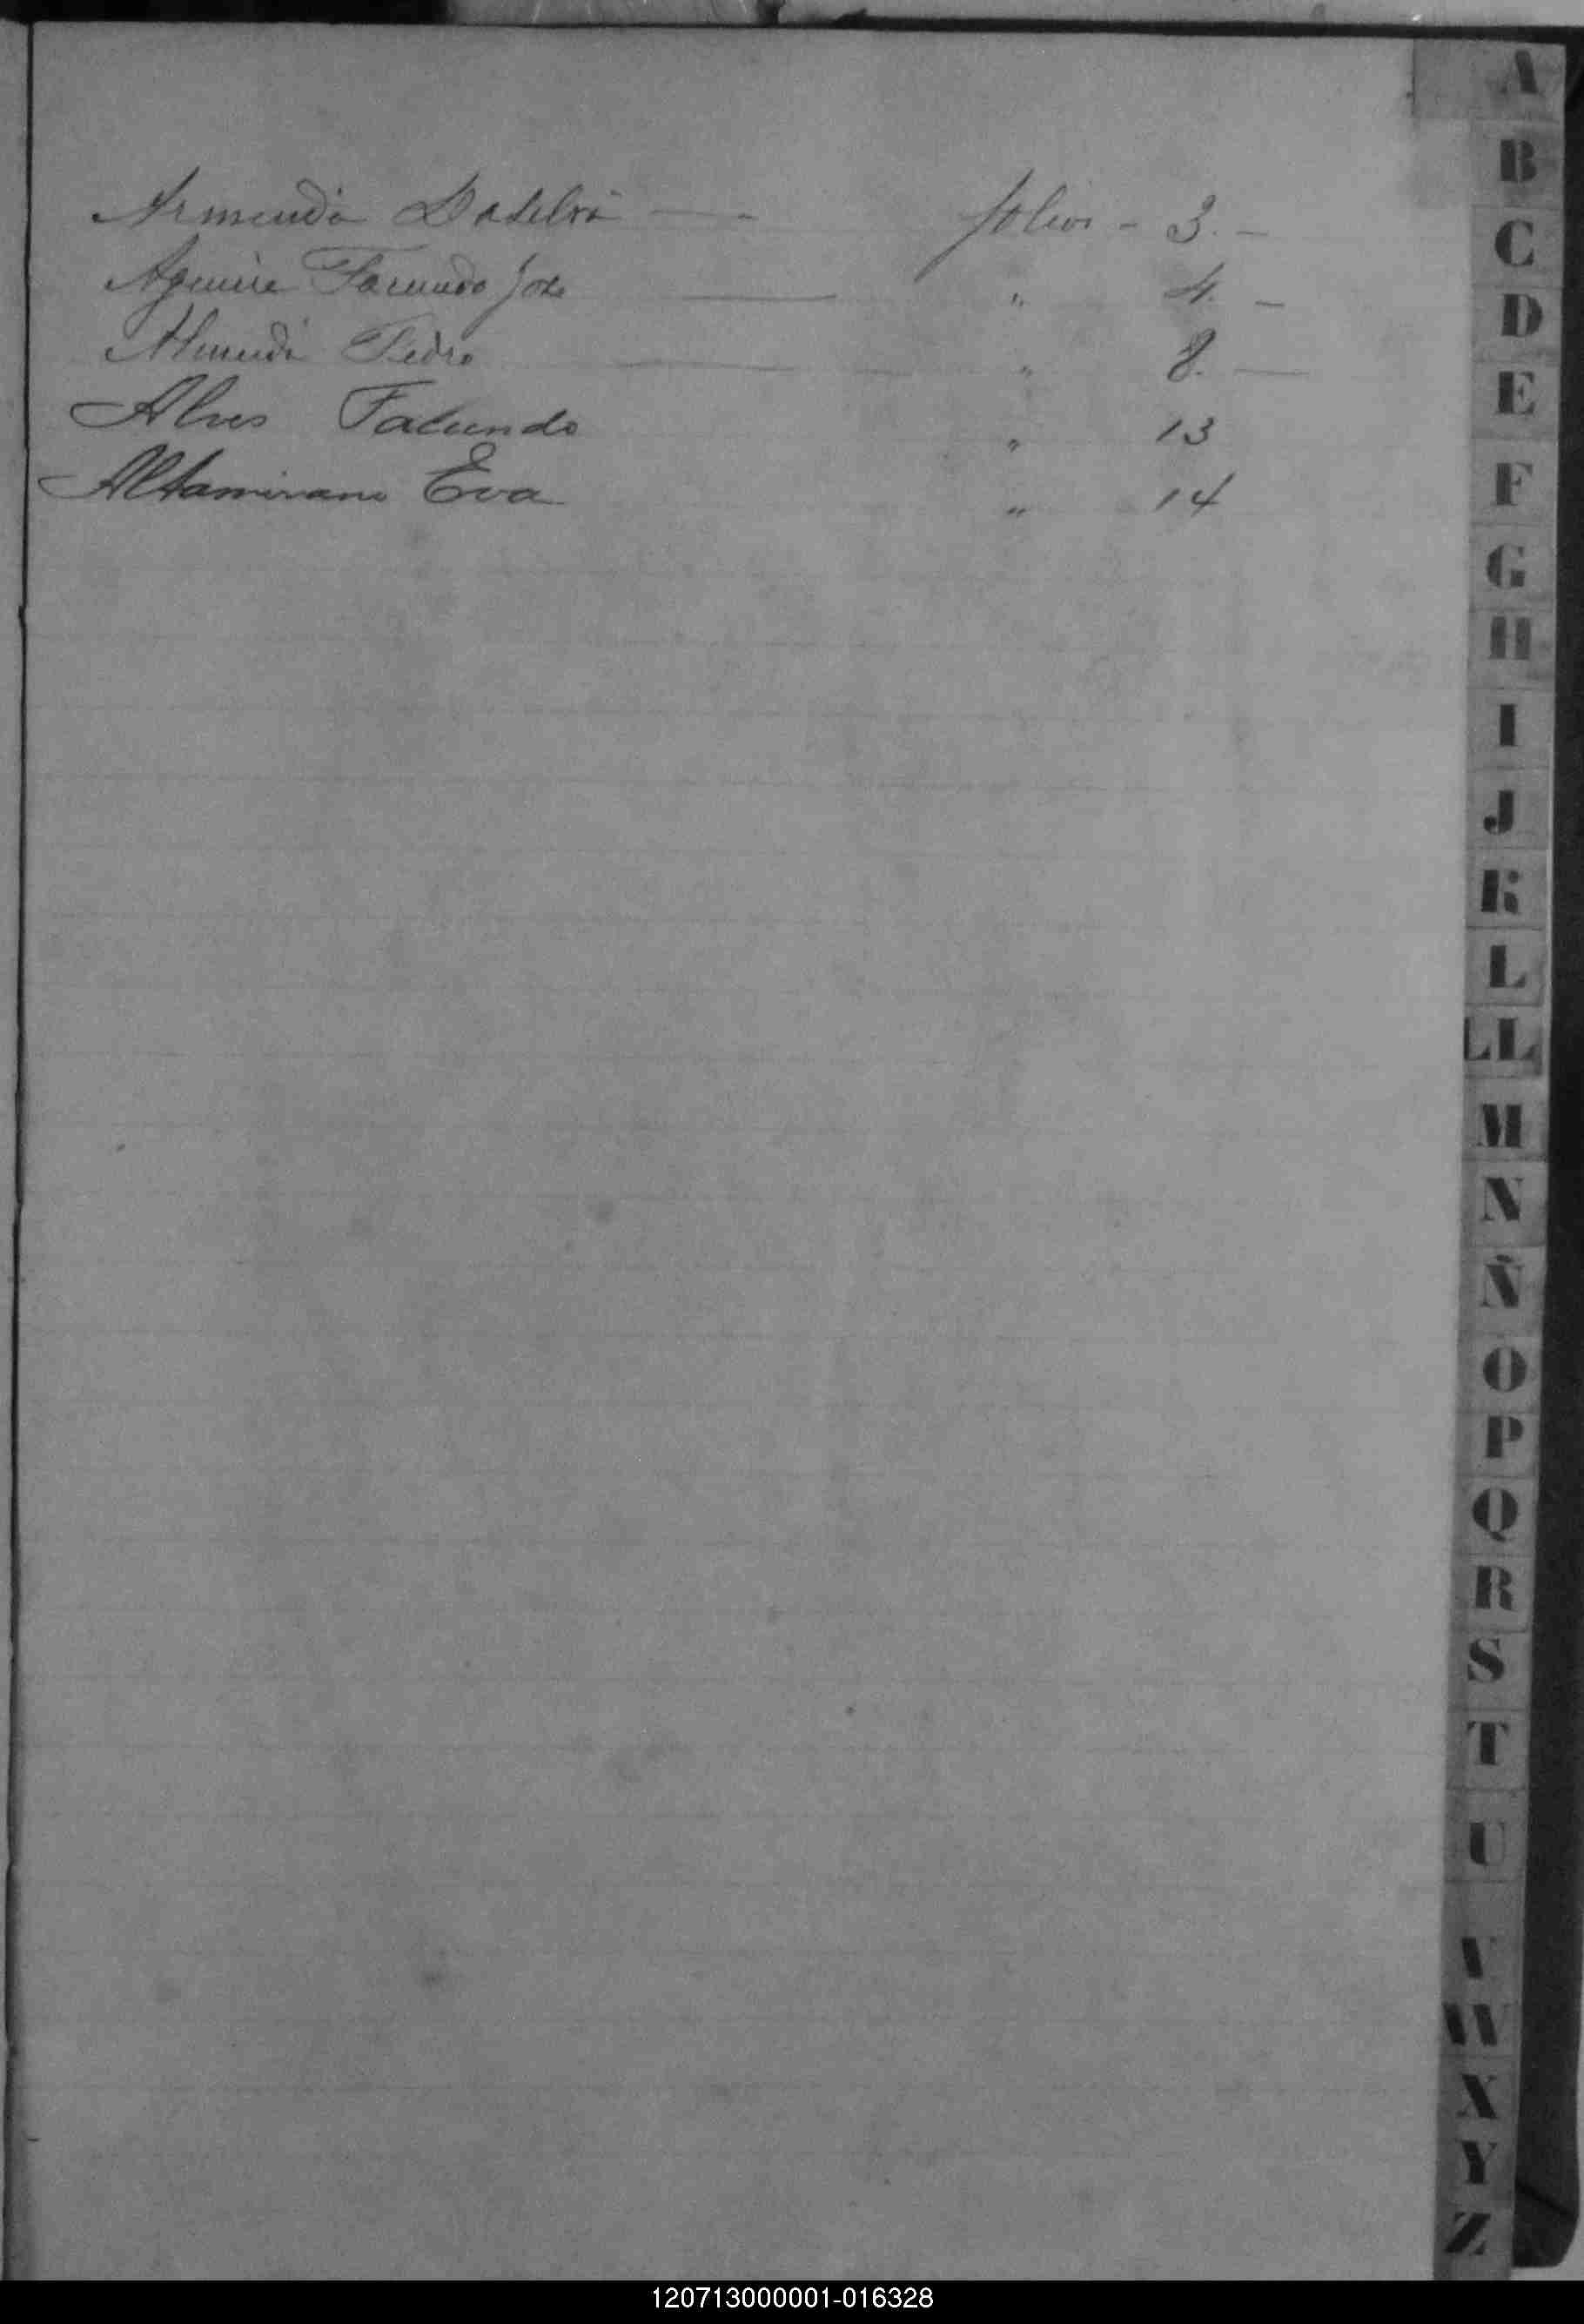 Armendia Dasilva — folios - 3. -
Aguirre Facundo José — " 4. -
Almendi Pedro — " 8. -
Alves Facundo " 13
Altamirano Eva " 14
A
B
C
D
E
F
G
H
I
J
K
L
LL
M
N
Ñ
O
P
Q
R
S
T
U
V
W
X
Y
Z
120713000001-016328